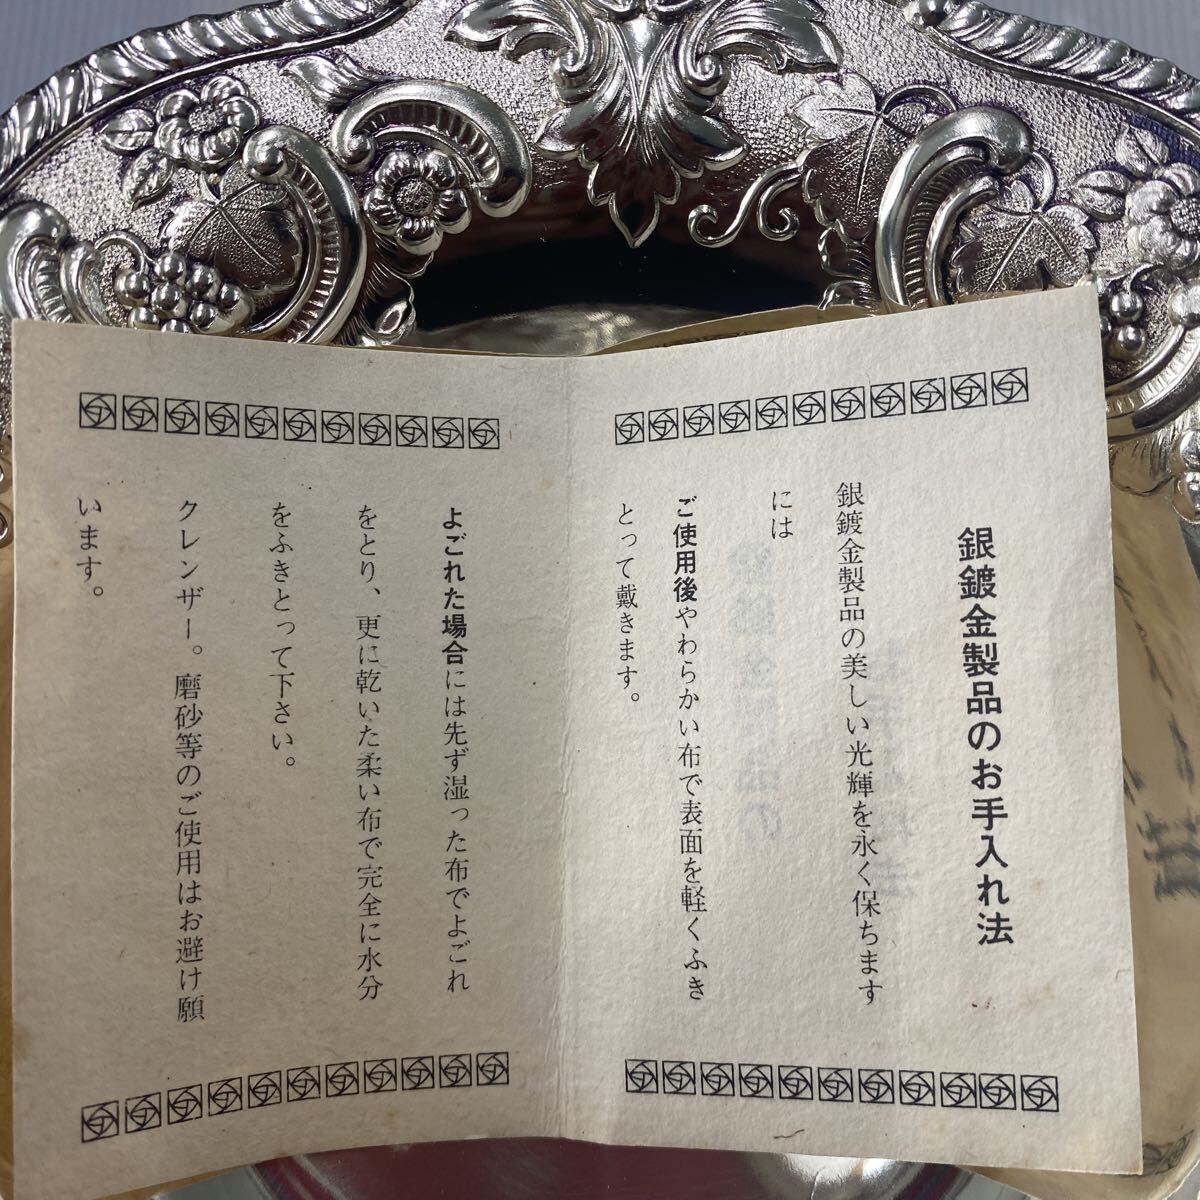 銀鍍金製品のお手入れ法
銀鍍金製品の美しい光輝を永く保ちます
には
ご使用後やわらかい布で表面を軽くふき
とって戴きます。
よごれた場合には先ず湿った布でよごれ
をとり、更に乾いた柔い布で完全に水分
をふきとって下さい。
クレンザー。磨砂等のご使用はお避け願
います。